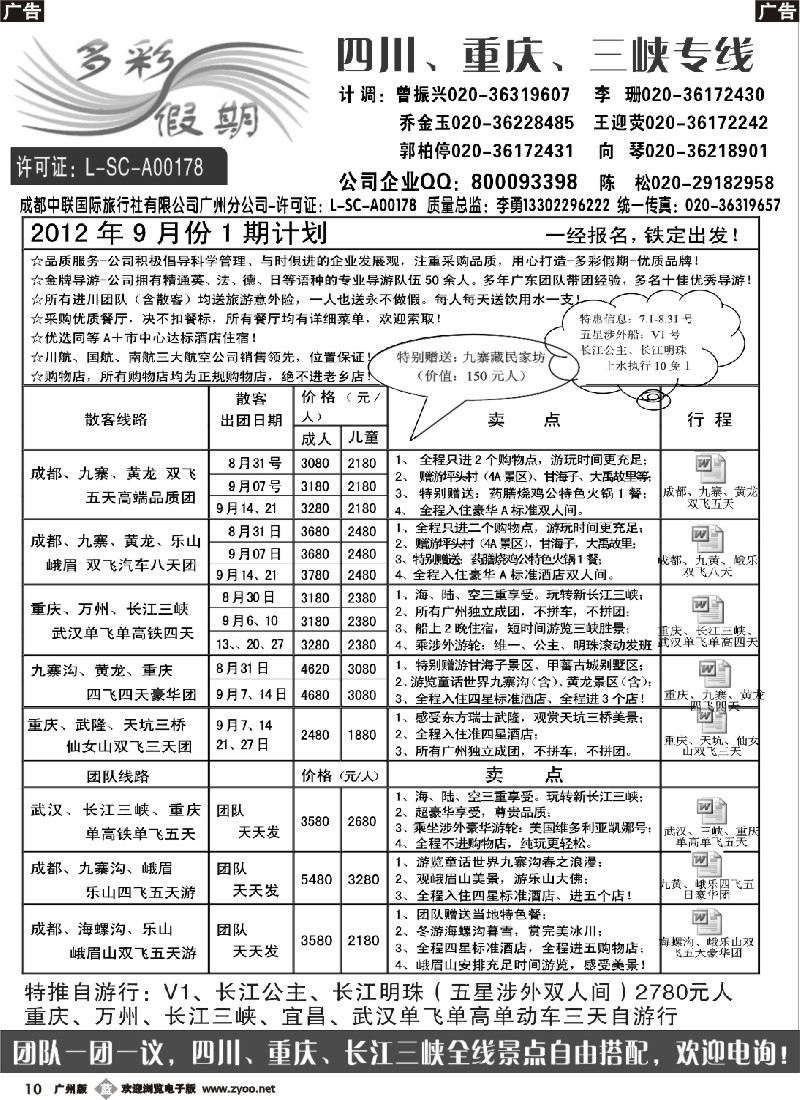 广告
广告
多彩
假期
四川、重庆、三峡专线
计 调：曾振兴020-36319607 李 珊020-36172430
乔金玉020-36228485 王迎荧020-36172242
郭柏停020-36172431 向 琴020-36218901
许可证：L-SC-A00178
公司企业QQ：800093398 陈 松020-29182958
成都中联国际旅行社有限公司广州分公司-许可证：L-SC-A00178 质量总监：李勇13302296222 统一传真：020-36319657
2012 年 9 月份 1 期计划
一经报名，铁定出发！
☆品质服务-公司积极倡导科学管理、与时俱进的企业发展观，注重采购品质，用心打造-多彩假期-优质品牌！
☆金牌导游-公司拥有精通英、法、德、日等语种的专业导游队伍 50 余人。多年广东团队带团经验，多名十佳优秀导游！
☆所有进川团队（含散客）均送旅游意外险，一人也送永不做假。每人每天送饮用水一支！
☆采购优质餐厅，决不扣餐标，所有餐厅均有详细菜单，欢迎索取！
☆优选同等 A＋市中心达标酒店住宿！
☆川航、国航、南航三大航空公司销售领先，位置保证！
☆购物店，所有购物店均为正规购物店，绝不进老乡店！
特别赠送：九寨藏民家坊
（价值：150 元人）
特惠信息：7.1-8.31 号
五星涉外船：V1 号
长江公主、长江明珠
上水执行 10 免 1
散客线路
散客
出团日期
价 格 （元/人）
成人
儿童
卖 点
行 程
成都、九寨、黄龙 双飞
五天高端品质团
8 月 31 号 3080 2180
9 月 07 号 3180 2180
9 月 14、21 3280 2180
1、 全程只进 2 个购物点，游玩时间更充足；
2、 赠游坪头村（4A 景区）、甘海子、大禹故里等；
3、 特别赠送：药膳烧鸡公特色火锅 1 餐；
4、 全程入住豪华 A 标准双人间。
成都、九寨、黄龙
双飞五天
成都、九寨、黄龙、乐山
峨眉 双飞汽车八天团
8 月 31 日 3680 2480
9 月 07 日 3680 2480
9 月 14、21 3780 2480
1、全程只进二个购物点，游玩时间更充足；
2、赠游坪头村（4A 景区），甘海子，大禹故里；
3、特别赠送：药膳烧鸡公特色火锅 1 餐；
4、全程入住豪华 A 标准酒店双人间。
成都、九黄、峨乐
双飞八天
重庆、万州、长江三峡
武汉单飞单高铁四天
8 月 30 日 3180 2380
9 月 6、10 3180 2380
13、、20、27 3280 2380
1、海、陆、空三重享受。玩转新长江三峡；
2、所有广州独立成团，不拼车，不拼团；
3、船上 2 晚住宿，短时间游览三峡胜景；
4、乘涉外游轮：维一、公主、明珠滚动发班
重庆、长江三峡、
武汉单飞单高四天
九寨沟、黄龙、重庆
四飞四天豪华团
8 月 31 日 4620 3080
9 月 7、14 日 4680 3080
1、特别赠游甘海子景区、甲蕃古城别墅区；
2、游览童话世界九寨沟（含）、黄龙景区（含）；
3、全程入住四星标准酒店、全程进 3 个店！
重庆、九寨、黄龙
四飞四天
重庆、武隆、天坑三桥
仙女山双飞三天团
9 月 7、14
21、27 日
2480 1880
1、感受东方瑞士武隆，观赏天坑三桥美景；
2、全程入住准四星酒店；
3、所有广州独立成团，不拼车，不拼团。
重庆、天坑、仙女
山双飞三天
团队线路
价格（元/人）
卖 点
武汉、长江三峡、重庆
单高铁单飞五天
团队
天天发
3580 2680
1、海、陆、空三重享受。玩转新长江三峡；
2、超豪华享受，尊贵品质；
3、乘坐涉外豪华游轮：美国维多利亚凯娜号；
4、全程不进购物店，纯玩更轻松。
武汉、三峡、重庆
单高单飞五天
成都、九寨沟、峨眉
乐山四飞五天游
团队
天天发
5480 3280
1、游览童话世界九寨沟春之浪漫；
2、观峨眉山美景，游乐山大佛；
3、全程入住四星标准酒店、进五个店！
九黄、峨乐四飞五
日豪华团
成都、海螺沟、乐山
峨眉山双飞五天游
团队
天天发
3580 2180
1、团队赠送当地特色餐；
2、冬游海螺沟暮雪，赏完美冰川；
3、全程四星标准酒店，全程进五购物店；
4、峨眉山安排充足时间游览，感受美景！
海螺沟、峨乐山双
飞五天豪华团
特推自游行：V1、长江公主、长江明珠（五星涉外双人间）2780元人
重庆、万州、长江三峡、宜昌、武汉单飞单高单动车三天自游行
团队一团一议，四川、重庆、长江三峡全线景点自由搭配，欢迎电询！
10 广州版 蓝 欢迎浏览电子版 www.zyoo.net